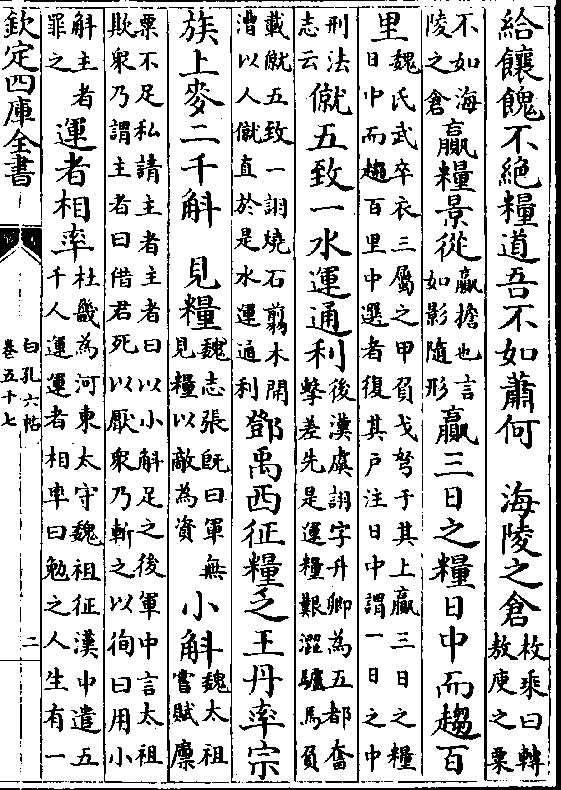 給饟餽不絶糧道吾不如蕭何　海陵之倉枚乘曰轉敖庾之粟
不如海陵之倉贏糧景從贏擔也言如影隨形贏三日之糧日中而趨百
里魏氏武卒衣三屬之甲負戈弩于其上贏三日之糧日中而趨百里中選者復其户注日中謂一日之中
刑法志云僦五致一水運通利後漢虞詡字升卿為五都奮擊差先是運糧艱澀驢馬負
載僦五致一詡燒石翦木開漕以人僦直於是水運通利鄧禹西征糧乏王丹率宗
族上麥二千斛　見糧魏志張既曰軍無見糧以敵為資小斛魏太祖嘗賦廪
粟不足私請主者主者曰以小斛足之後軍中言太祖欺衆乃謂主者曰借君死以厭衆乃斬之以徇曰用小
斛主者罪之運者相率杜畿為河東太守魏祖征漢中遣五千人運運者相率曰勉之人生有一
欽定四庫全書
白孔六帖
卷五十七
二